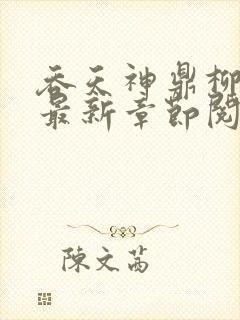 吞天神鼎柳
最新章節閱
陳文茜